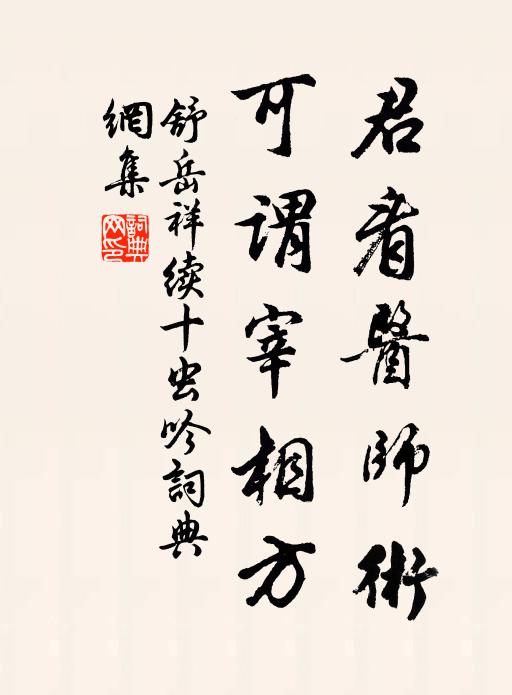 君看醫師術
可謂宰相方
舒岳祥續十虫吟詞典
網集
詞典
网印